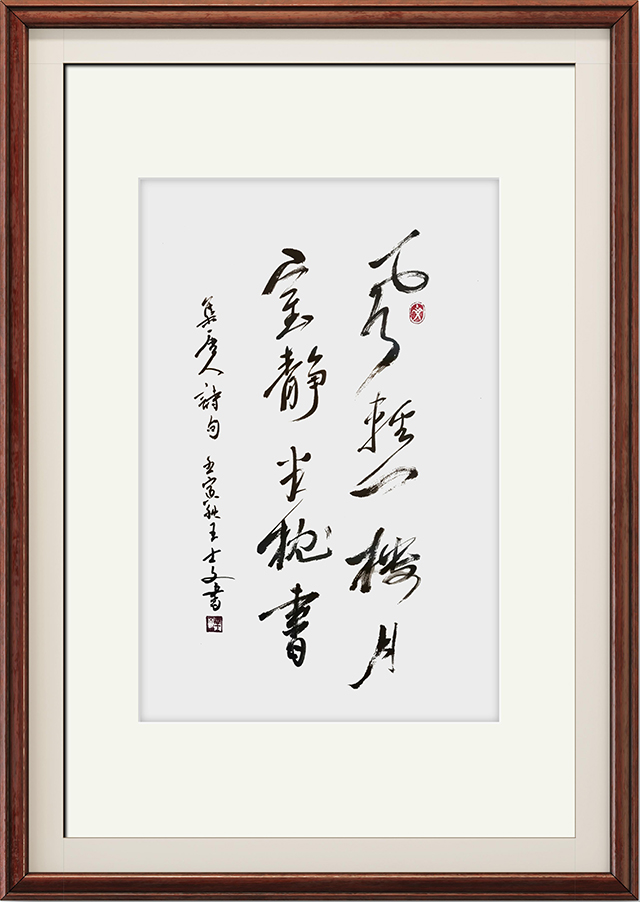 輕一樓月
室靜半枕書
集唐人詩句 壬寅秋王士文書